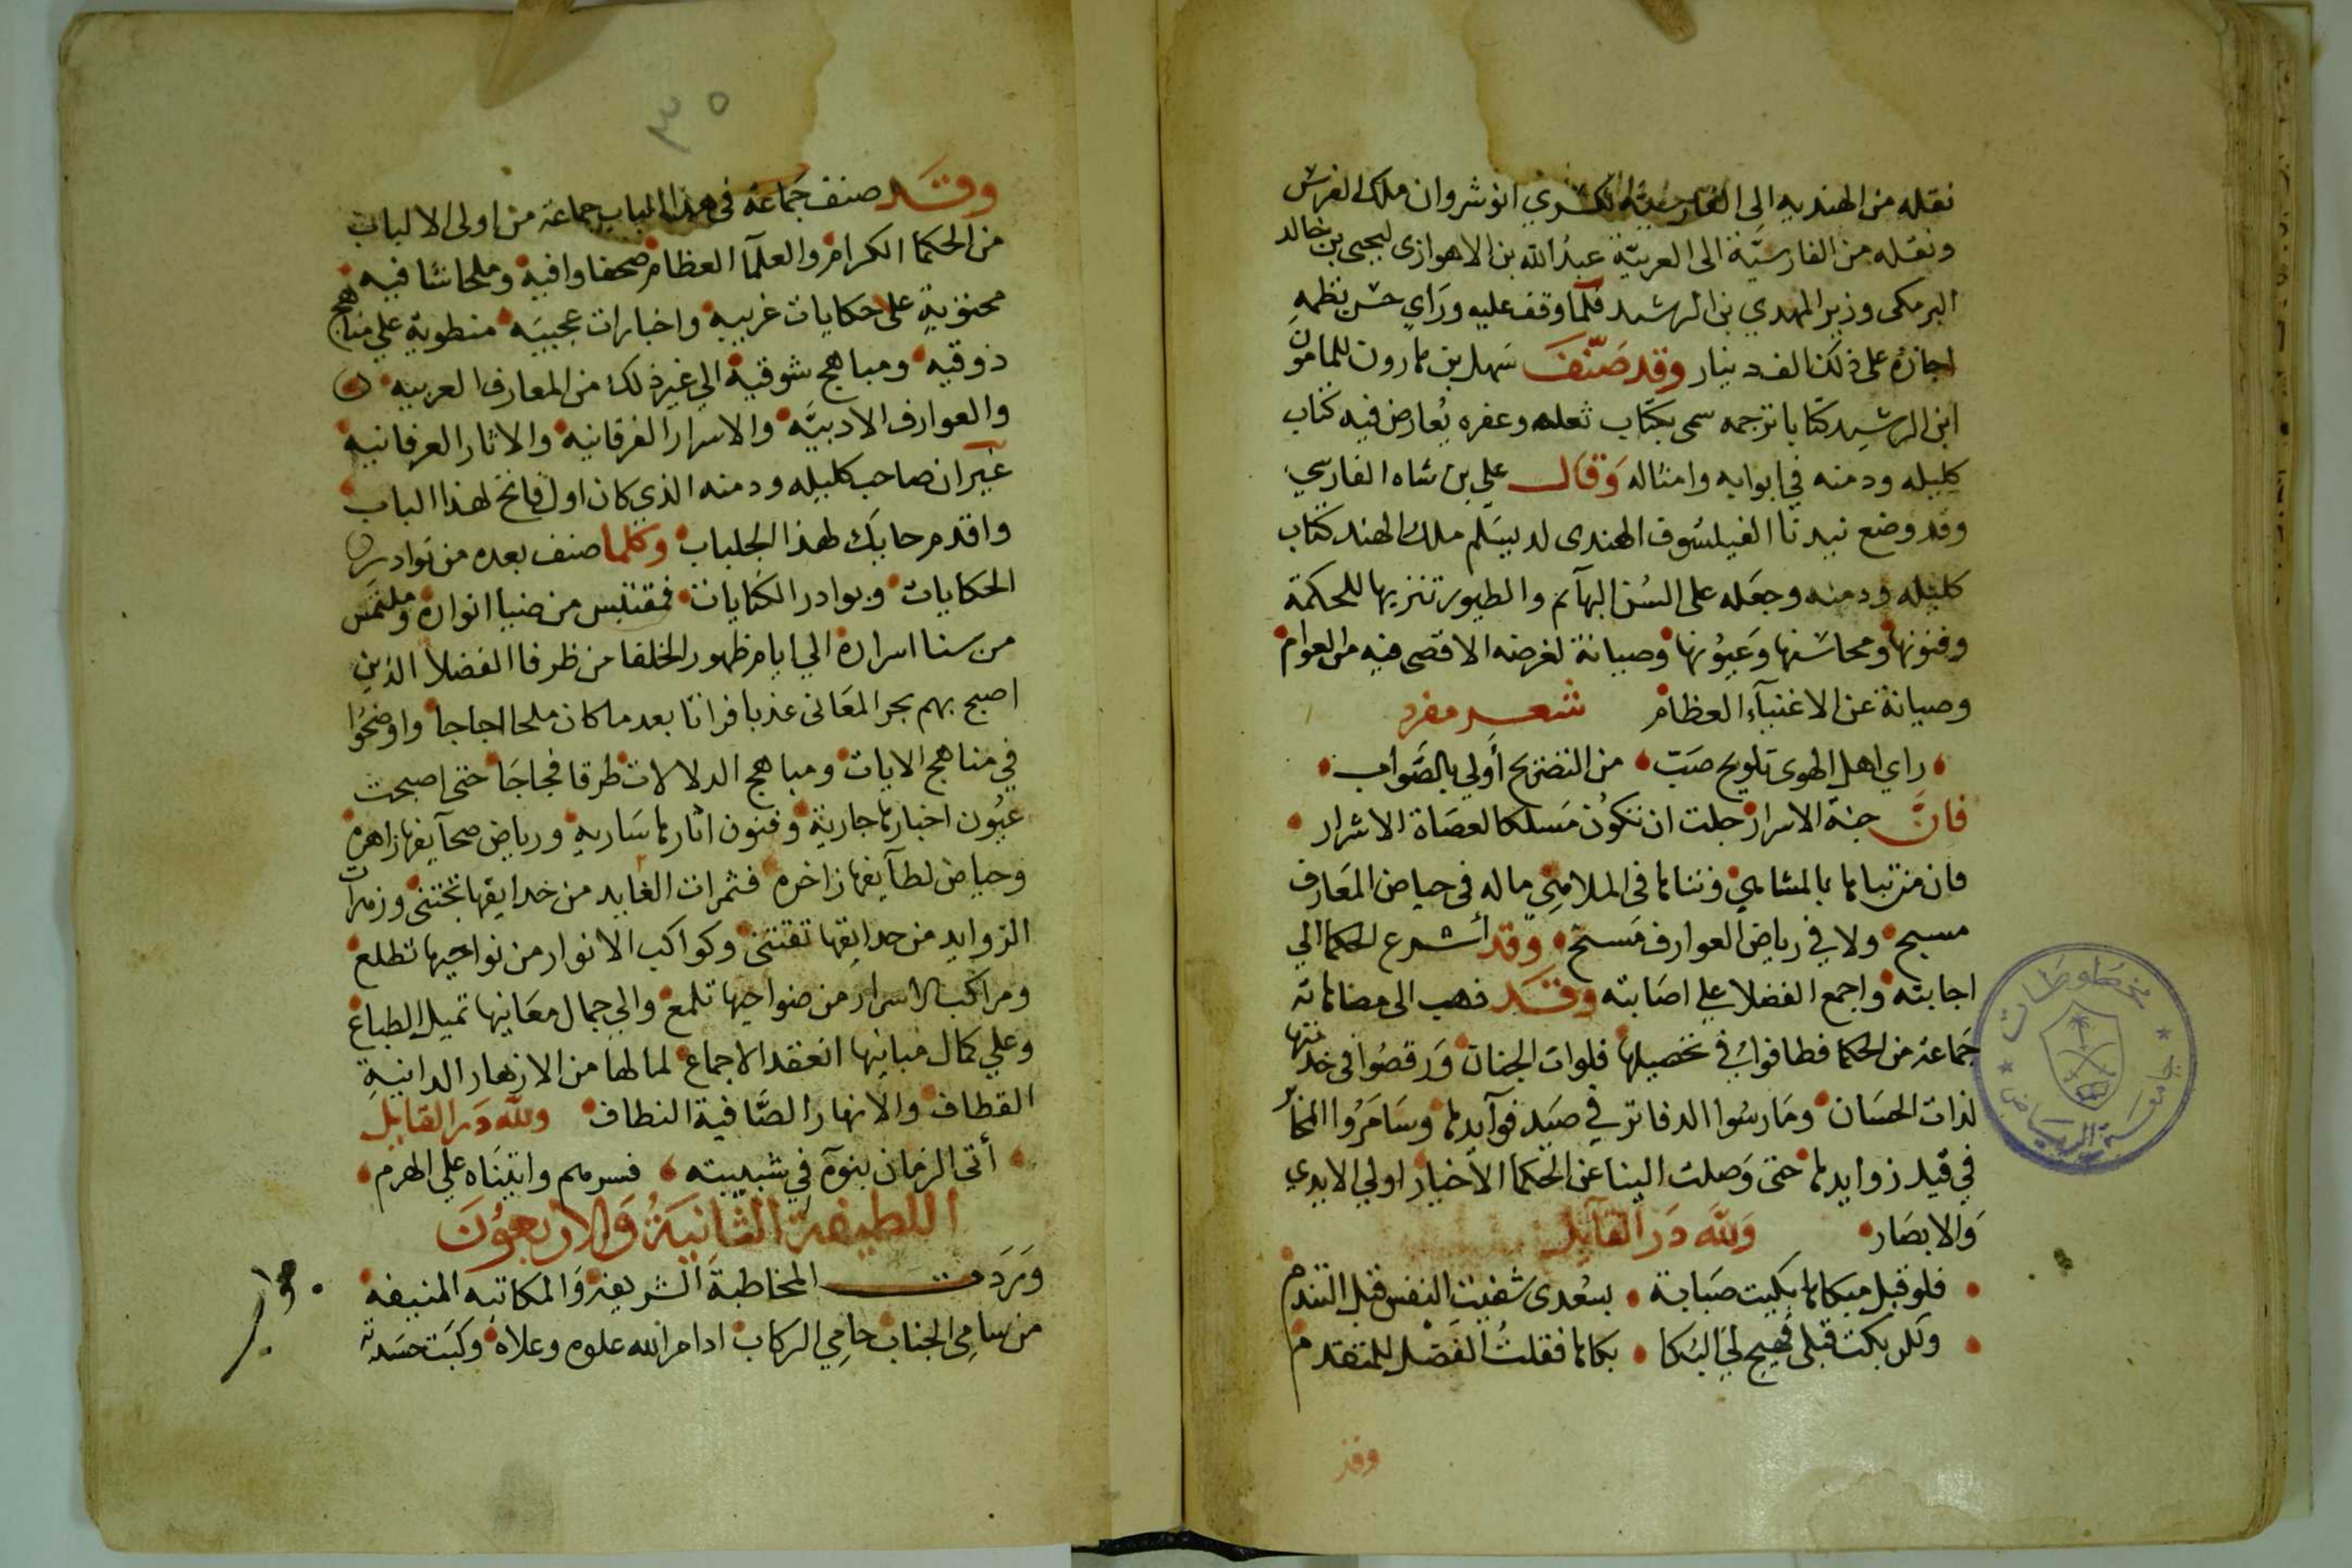 نقله من الهنديه الى الفارسية لكسري انوشروان ملك الفرس
ونقله من الفارسيَّة الى العربيّة عبدُ الله بن الاهوازى ليحيى بن خالد
البرمكى وزير المهدي بن الرشيد فلمّا وقف عليه وراي حسن نظمه
اجازهُ على ذلك الف دينار وقد صَنّفَ سَهل بن هارون للمامون
ابن الرشيد كتابا ترجمه سمى بكتاب ثعله وعفره يُعارض فيه كتاب
كليله ودمنه في ابوابه وامثاله وَقال علي بن شاه الفارسي
وقد وضع بيدبا الفيلسُوف الهندى لدبيسَلم ملك الهند كتاب
كليله ودمنه وجعَله على السُن البهآيم والطيور تنزيها للحكمة
وفنونها ومحاسنها وَعيُونها وصيانة لغرضه الاقصى فيه من العوام
وصيانة عن الاغنيآء العظام شعر مفرد
راي اهل الهوى تلويح صَبّ من التصريح أولي بالصَّواب
فانَّ جنة الاسرار جلت ان تكوُن مَسلكا لعصَاة الاشرار
فان منزنباها بالمشاهي وننناها فى الملاهِي ماله فى حياض المعَارف
مسبح ولا في رياض العوارف مَسنح وَقد أسرع الحكما الي
اجابته واجمع الفضلا علي اصَابته وقَد فهب الى مضاهاته
جَماعة من الحكما فطافوا في تحصيلها فلوات الجنان وَرقصُوا فى خدمتها
لذات الحسَان ومَارسُوا الدفاتر في صيَد فوآيدها وسَامَرُوا المحابر
في قيد زوايدها حتى وَصلت الينا عن الحكما الاخيار اولي الايدي
وَالابصَار وَلله دَر القآيل
فلو قبل مبكاها بكيت صَبابة بسُعدى شفيت النفس قبل التندم
ولكن بكت قبلى فهيج لي البُكا بكاها فقلتُ الفَضل للمتقدم
وقد
٣٥
وقَد صنف جَماعة في هذا الباب جماعة من اولى الالباب
من الحكما الكرام والعلمآ العظام صحفا وافية وملحا شافيه
محتويةٍ على حكايات غريبة واخبارات عجيبَه منطوية علي مناهج
ذوقيه ومباهج شوقية الي غير ذلك من المعارف العربيه
والعوارف الادبيَّه والاسرار الفرقانية والاثار العرفانية
غيرَ ان صاحب كليله ودمنه الذي كان اول فاتح لهذا الباب
واقدم حابك لهذا الجلباب وكلما صنف بعده من نوادر
الحكايات وبوادر الكنايات فمقتبس من ضيا انواره وملتمس
من سنا اسراره الي ايام ظهور الخلفا من ظرفا الفضلا الذين
اصبح بهم بحر المعَانى عذبا فراتا بعد ما كان ملحا اجاجا واوضحُوا
في مناهج الايات ومباهج الدلالات طرقا فجاجَا حتى اصبحت
عيُون اخبارها جارية وفنون اثارها سَارية ورياض صحآيفها زاهره
وحياض لطآيفها زاخره فثمرات الفايد من خدايقها تجتنى وزمرات
الزوايد من حدائقها تقتنى وكواكب الانوار من نواحيها تطلع
ومراكب الاسرار من ضواحيها تلمع والي جمال معَانيها تميل الطباع
وعلي كمال مبانيها انعقد الاجماع لما لها من الازهار الدانيةِ
القطاف والانهار الصَّافية النطاف ولله دَر القايل
أتى الزمان بنوهُ في شبيبته فسرهم واتينَاه علي الهرم
اللطيفة الثانيَةُ وَالاربعوُنَ
وَرَدَت المخاطبة الشريفة وَالمكاتبه المنيفه
من سامِى الجناب حامِي الركاب ادام الله علوه وعلاه وكبَت حسَدته
مخطوطات
جامعة الرياض